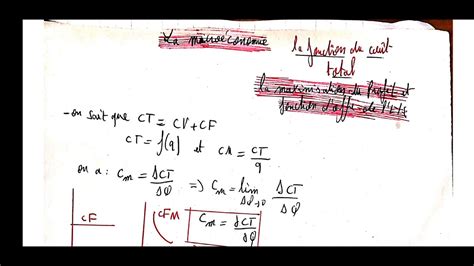 La microéconomie
la fonction du coût
total
la maximisation du Profit et
fonction d'offre de l'E/se
- on sait que CT = CV + CF
CT = f(q) et CM = CT/q
on a : Cm = ΔCT/ΔQ ⇒ Cm = lim ΔQ→0 ΔCT/ΔQ
CF
CFM
Cm = dCT/dQ